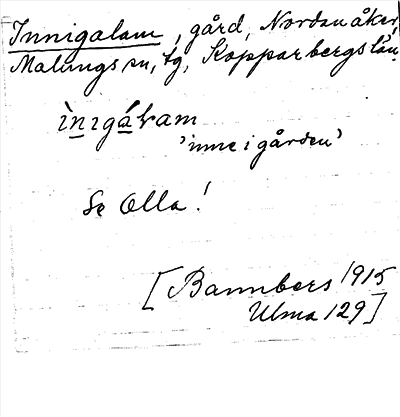 Innigalam, gård, Nordanåker,
Malungs sn, tg, Kopparbergs län.
ìnıgáɫam
'inne i gården'
Se Olla!
[Bannbers 1915
Ulma 129]